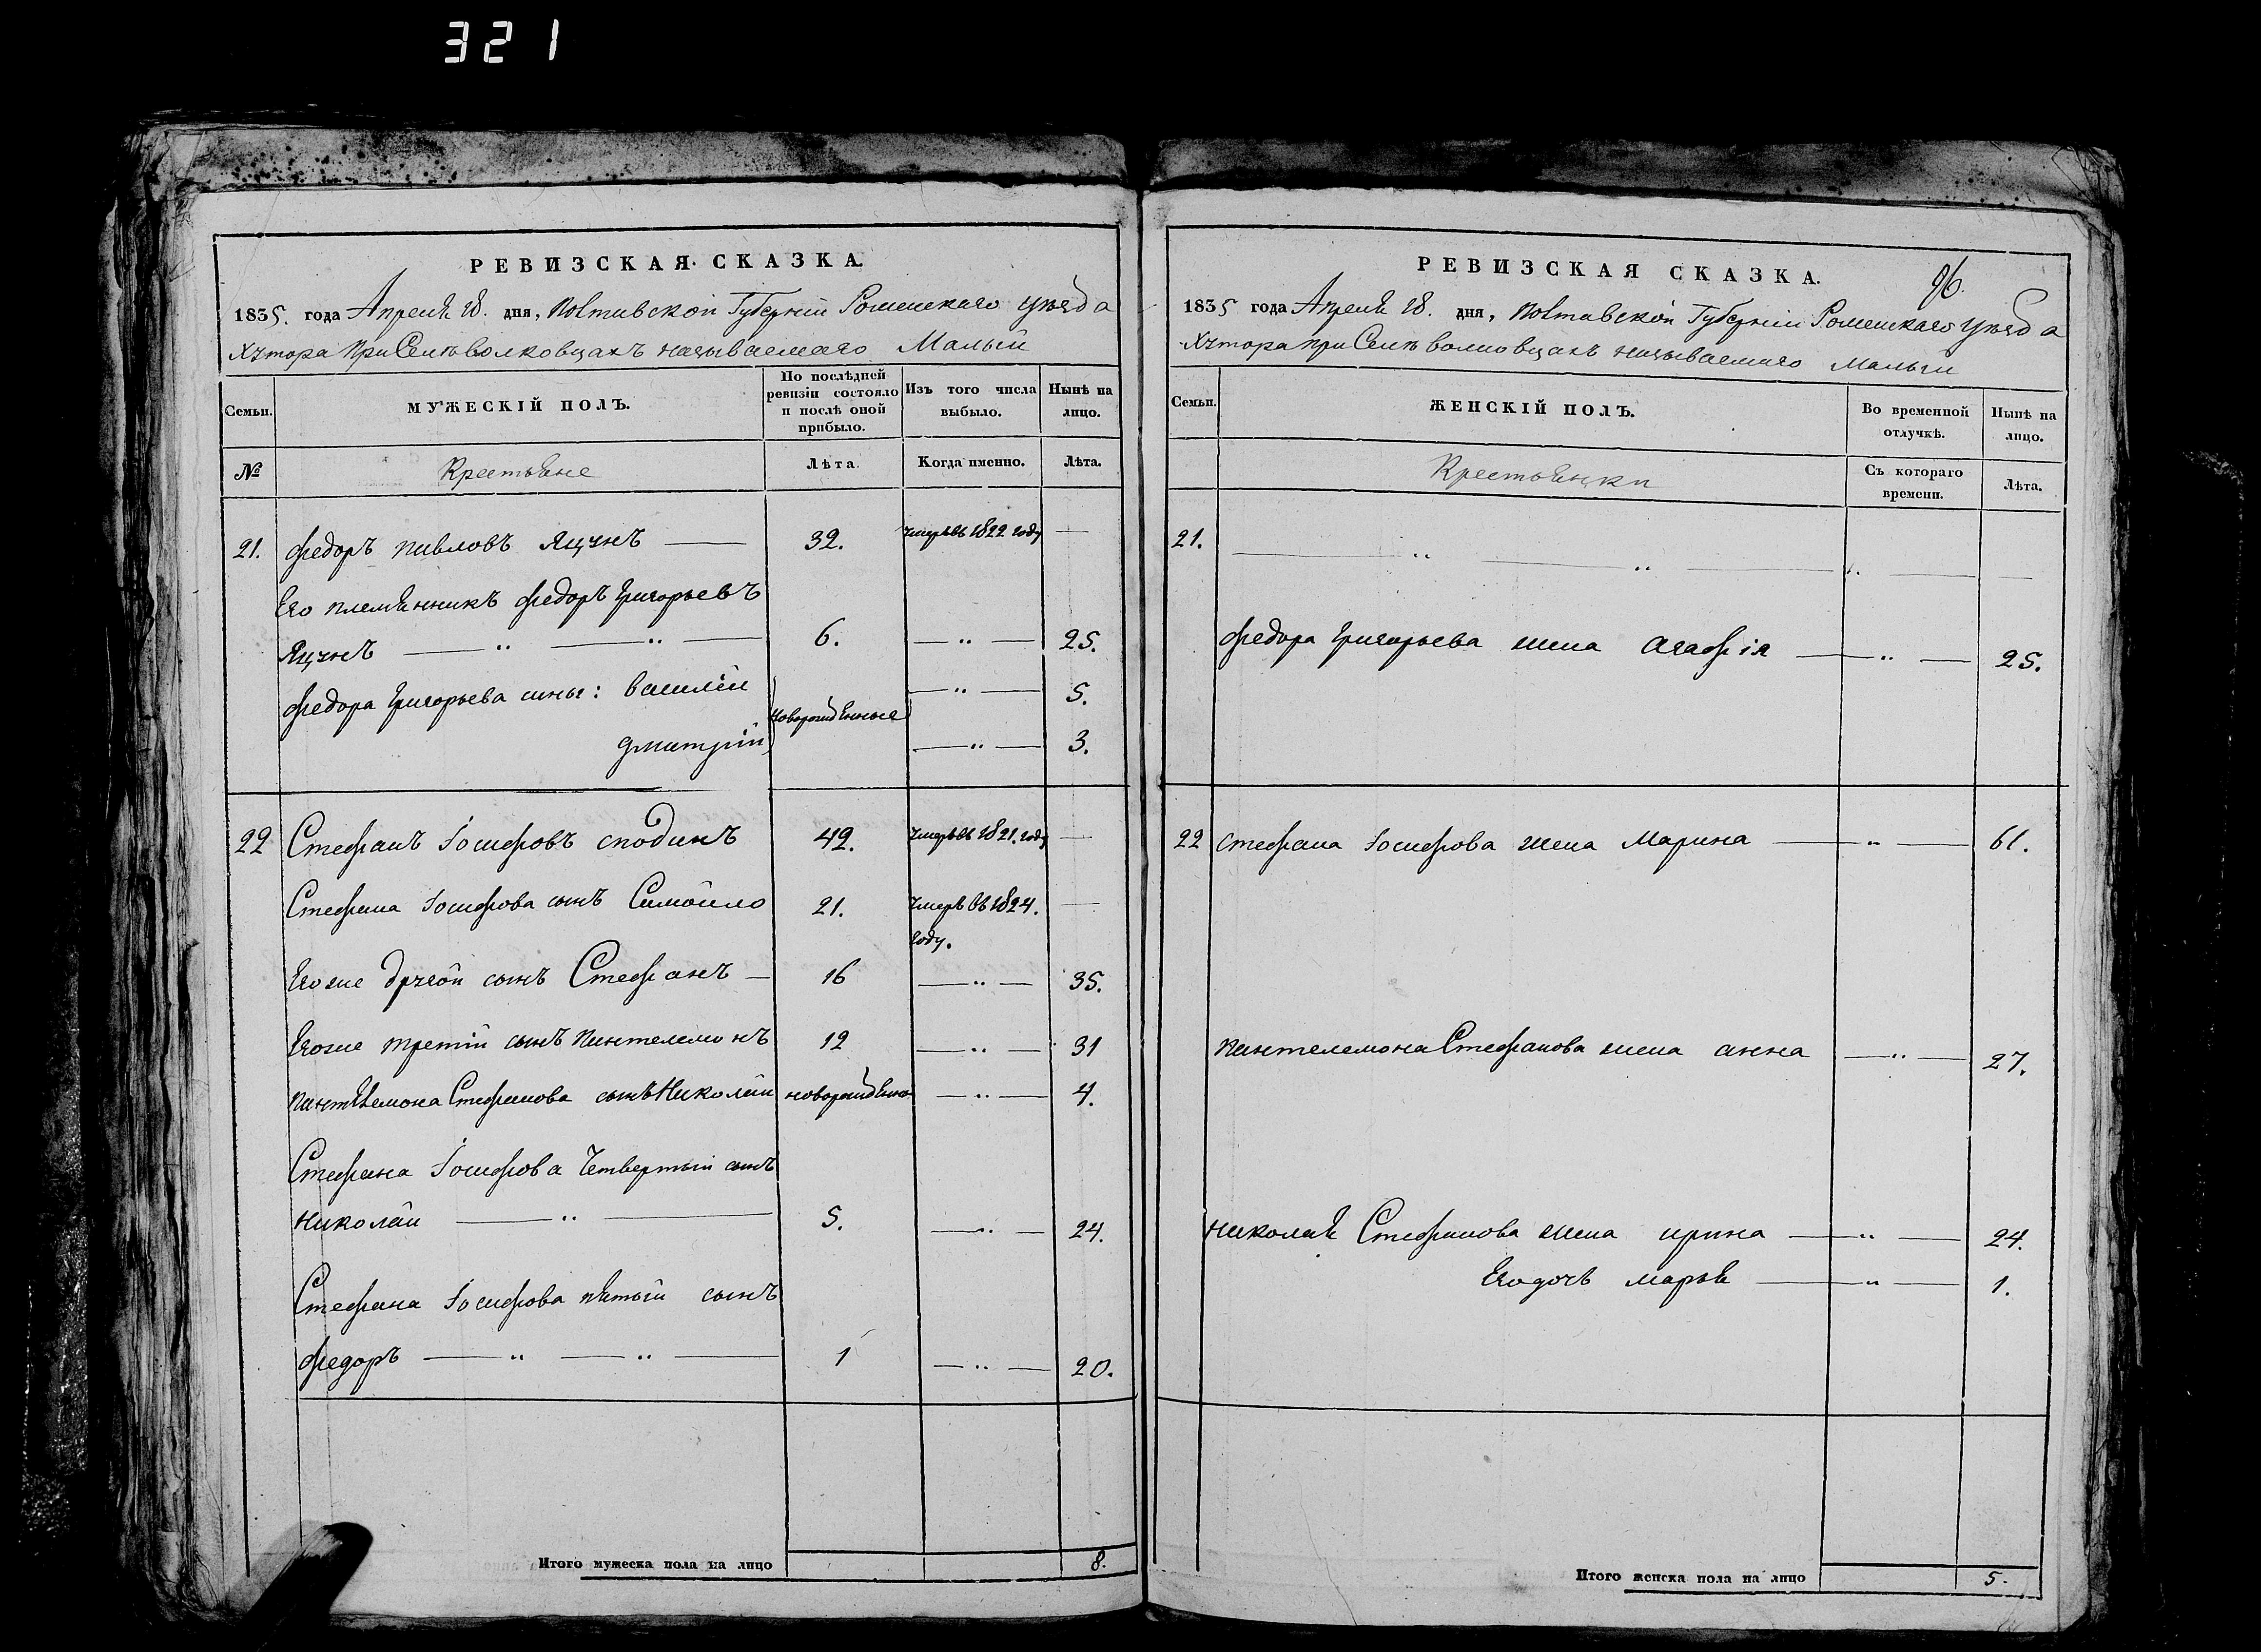 321
РЕВИЗСКАЯ СКАЗКА.
1835. года Апреля 18. дня, Полтавской Губерніи Роменскаго уѣзда
Хутора при Селѣ Волковцахъ называемаго Малый
Семьи.
МУЖЕСКІЙ ПОЛЪ.
По послѣдней ревизіи состояло и послѣ оной прибыло.
Изъ того числа выбыло.
Нынѣ на лицо.
№
Крестьяне
Лѣта.
Когда именно.
Лѣта.
21. Федоръ Павловъ Яцунъ — 32. умеръ въ 1822 году —
Его племянникъ Федоръ Григорьевъ
Яцунъ — „ — „ — 6. — „ — 25.
Федора Григорьева сыны: Василій — „ — 5.
новорожденные
Дмитрій — „ — 3.
22 Стефанъ Іосифовъ Сподинъ 42. умеръ въ 1821. году —
Стефана Іосифова сынъ Самойло 21. умеръ въ 1824. —
году.
Его же другой сынъ Стефанъ — 16 — „ — 35.
Его же третій сынъ Пантелемонъ 12 — „ — 31
Пантелемона Стефанова сынъ Николай новорожденн — „ — 4.
Стефана Іосифова Четвертый сынъ
Николай — „ — 5. — „ — 24.
Стефана Іосифова пятый сынъ
Федоръ — „ — „ — 1 — „ — 20.
Итого мужеска пола на лицо 8.
РЕВИЗСКАЯ СКАЗКА.
96.
1835 года Апреля 18. дня, Полтавской Губерніи Роменскаго уѣзда
Хутора при Селѣ Волковцахъ называемаго Малый
Семьи.
ЖЕНСКІЙ ПОЛЪ.
Во временной отлучкѣ.
Нынѣ на лицо.
Крестьянки
Съ котораго времени.
Лѣта.
21. — „ — „ — „ — —
Федора Григорьева жена Агафія — „ — 25.
22 Стефана Іосифова жена Марина — „ — 61.
Пантелемона Стефанова жена Анна — „ — 27.
Николая Стефанова жена Ирина — „ — 24.
Его дочь Марья — „ — 1.
Итого женска пола на лицо 5.